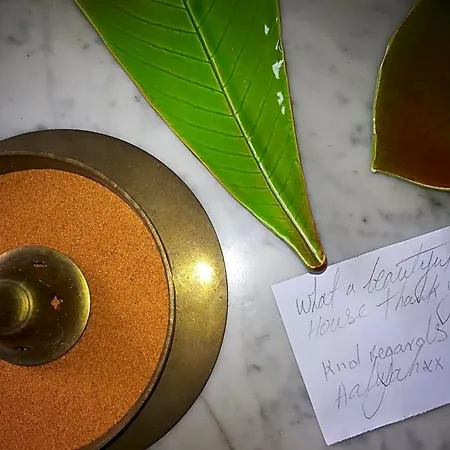 What a beautiful
House thank y
Kind regards
Aaliyah xx